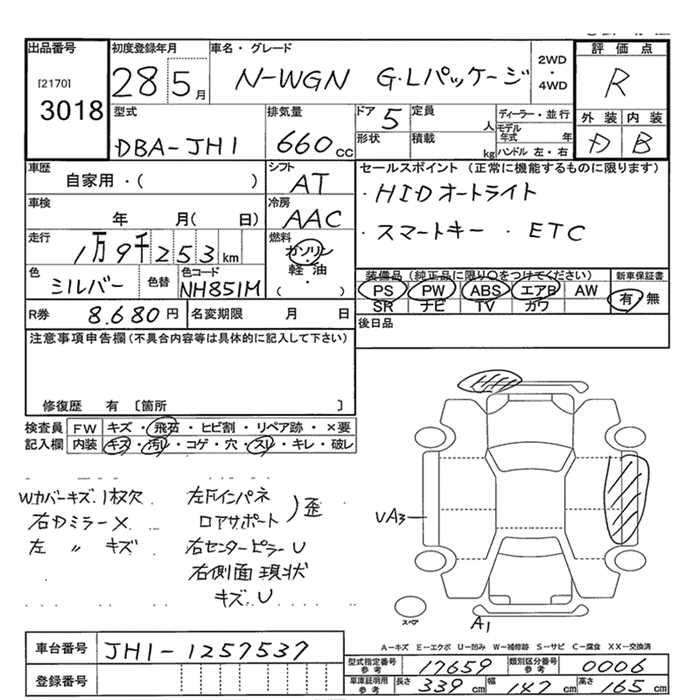 出品番号 初度登録年月 車名・グレード 2WD・4WD 評価点
[2170] 3018 28 5月 N-WGN G・Lパッケージ R
型式 排気量 ドア 5 定員 人 ディーラー・並行 外装 内装
DBA-JH1 660cc 形状 積載 kg モデル年式 年 D B
ハンドル 左・右
車歴 シフト セールスポイント (正常に機能するものに限ります)
自家用・( ) AT ・HIDオートライト
車検 年 月( 日) 冷房 AAC ・スマートキー ・ETC
走行 1万9千253km 燃料 ガソリン
軽油
・
( )
色 シルバー 色替 色コード NH851M
装備品 (純正品に限り○をつけてください) 新車保証書
PS PW ABS エアB AW 有・無
SR ナビ TV カワ
R券 8,680円 名変期限 月 日 後日品
注意事項申告欄(不具合内容等は具体的に記入して下さい)
修復歴 有 〔箇所 〕
検査員 FW キズ・飛石・ヒビ割・リペア跡・×要
記入欄 内装 キズ・汚レ・コゲ・穴・スレ・キレ・破レ
Wカバーキズ.1枚欠 左Fインパネ
右Dミラー× ロアサポート )歪
左 〃 キズ 右センターピラーU
右側面現状
キズ.U
UA3
スペア
A1
車台番号 JH1-1257537
A-キズ E-エクボ U-凹み W-補修跡 S-サビ C-腐食 XX-交換済
登録番号
型式指定番号 参考 17659 類別区分番号 参考 0006
車庫証明用 参考 長さ 339cm 幅 147cm 高さ 165cm